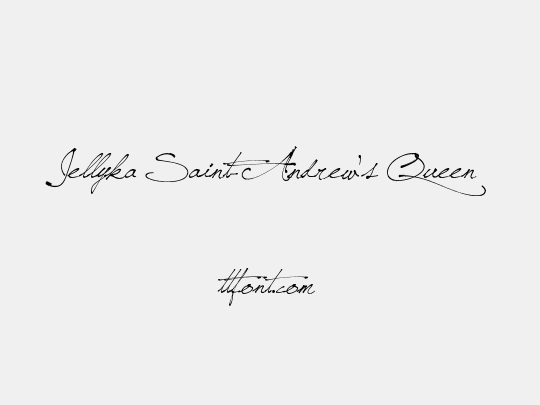 Jellyka Saint-Andrew's Queen
ttfont.com